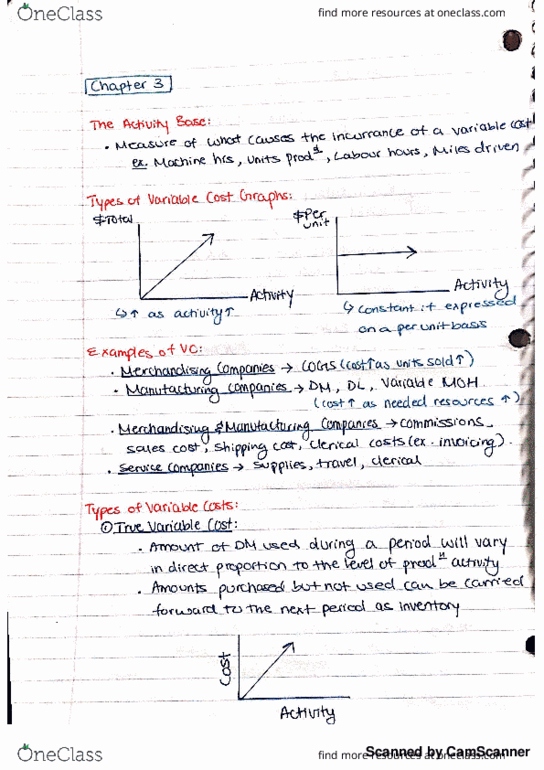 OneClass
find more resources at oneclass.com
Chapter 3
The Activity Base:
• Measure of what causes the incurrance of a variable cost
ex. Machine hrs, units prodⁿ, Labour hours, Miles driven
Types of Variable Cost Graphs:
$Total
$Per unit
Activity
Activity
↳ ↑ as activity ↑
↳ constant if expressed
on a per unit basis
Examples of VC:
• Merchandising Companies → COGS (cost ↑ as units sold ↑)
• Manufacturing Companies → DM, DL, Variable MOH
(cost ↑ as needed resources ↑)
• Merchandising & Manufacturing Companies → commissions
sales cost, shipping cost, clerical costs (ex. invoicing).
• Service Companies → supplies, travel, clerical
Types of Variable Costs:
① True Variable Cost:
• Amount of DM used during a period will vary
in direct proportion to the level of prodⁿ activity
• Amounts purchased but not used can be carried
forward to the next period as inventory
Cost
Activity
OneClass
find more resources at oneclass.com
Scanned by CamScanner